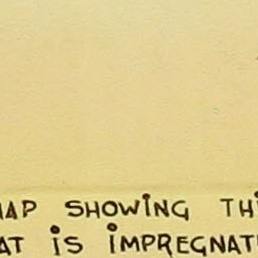 MAP SHOWING THI
AT iS iMPREGNAT